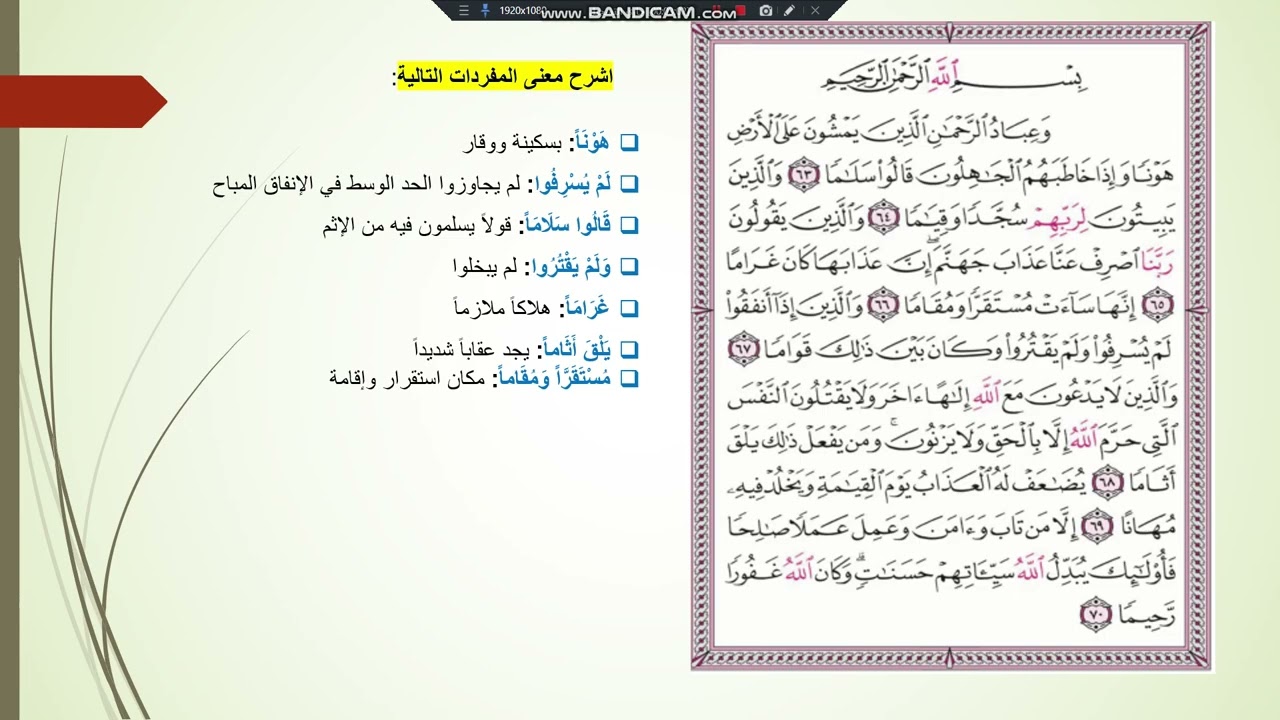 1920x1080
www.BANDICAM.com
اشرح معنى المفردات التالية:
هَوْنَاً: بسكينة ووقار
لَمْ يُسْرِفُوا: لم يجاوزوا الحد الوسط في الإنفاق المباح
قَالُوا سَلَامَاً: قولاً يسلمون فيه من الإثم
وَلَمْ يَقْتُرُوا: لم يبخلوا
غَرَامَاً: هلاكاً ملازماً
يَلْقَ أَثَاماً: يجد عقاباً شديداً
مُسْتَقَرَّاً وَمُقَاماً: مكان استقرار وإقامة
بِسْمِ اللَّهِ الرَّحْمَٰنِ الرَّحِيمِ
وَعِبَادُ الرَّحْمَٰنِ الَّذِينَ يَمْشُونَ عَلَى الْأَرْضِ
هَوْنًا وَإِذَا خَاطَبَهُمُ الْجَٰهِلُونَ قَالُوا۟ سَلَٰمًا ٦٣ وَالَّذِينَ
يَبِيتُونَ لِرَبِّهِمْ سُجَّدًا وَقِيَٰمًا ٦٤ وَالَّذِينَ يَقُولُونَ
رَبَّنَا اصْرِفْ عَنَّا عَذَابَ جَهَنَّمَ ۖ إِنَّ عَذَابَهَا كَانَ غَرَامًا
٦٥ إِنَّهَا سَآءَتْ مُسْتَقَرًّا وَمُقَامًا ٦٦ وَالَّذِينَ إِذَآ أَنفَقُوا۟
لَمْ يُسْرِفُوا۟ وَلَمْ يَقْتُرُوا۟ وَكَانَ بَيْنَ ذَٰلِكَ قَوَامًا ٦٧
وَالَّذِينَ لَا يَدْعُونَ مَعَ اللَّهِ إِلَٰهًا ءَاخَرَ وَلَا يَقْتُلُونَ النَّفْسَ
الَّتِي حَرَّمَ اللَّهُ إِلَّا بِالْحَقِّ وَلَا يَزْنُونَ ۚ وَمَن يَفْعَلْ ذَٰلِكَ يَلْقَ
أَثَامًا ٦٨ يُضَٰعَفْ لَهُ الْعَذَابُ يَوْمَ الْقِيَٰمَةِ وَيَخْلُدْ فِيهِۦ
مُهَانًا ٦٩ إِلَّا مَن تَابَ وَءَامَنَ وَعَمِلَ عَمَلًا صَٰلِحًا
فَأُو۟لَٰٓئِكَ يُبَدِّلُ اللَّهُ سَيِّـَٔاتِهِمْ حَسَنَٰتٍ ۗ وَكَانَ اللَّهُ غَفُورًا
رَّحِيمًا ٧٠